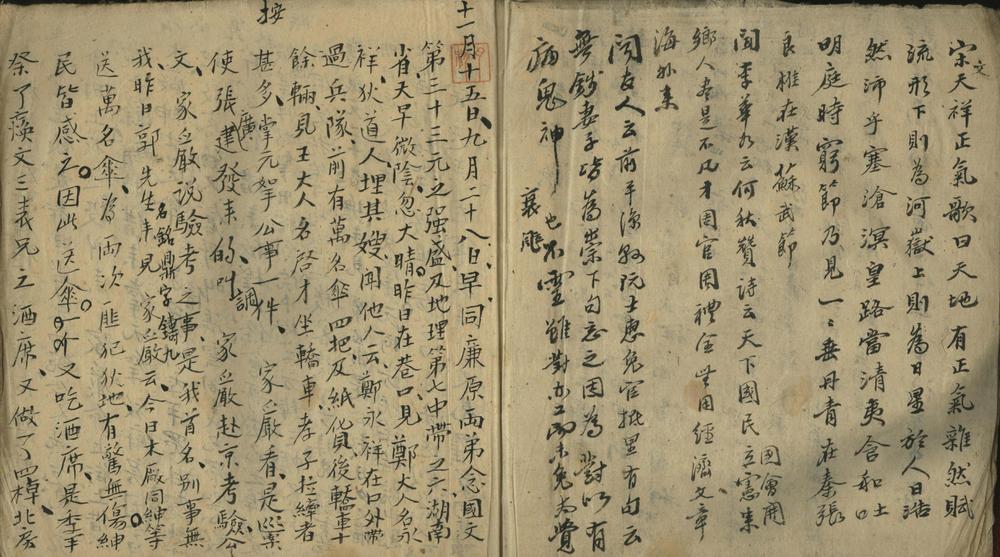 宋文天祥正氣歌曰天地有正氣雜然賦
流形下則為河嶽上則為日星於人曰浩
然沛乎塞滄溟皇路當清夷含和吐
明庭時窮節乃見一一垂丹青在秦張
良椎在漢蘇武節
聞李華如云何秋贊詩云天下國民 國會開
立憲
鄉人盡是不凡才因官用禮全無用經濟文章
海外來
閱友人云前平涼縣阮士惠免官批里有句云
無錢妻子皆為祟下句忘之因為對以有
病鬼神也不靈雖對亦工而未免太覺
衰颯
十一月十五日九月二十八日早同廉原兩弟念國文
第三十三元之强盛及地理第七中帶之六湖南
省天早微陰忽大晴昨日在巷口見鄭大人名永
祥狄道人埋其嫂聞他人云鄭永祥在口外帶
過兵隊前有萬名傘四把及紙貨後轎車十
餘輛見王大人名啓才坐轎車孝子拉縴者
甚多掌元拏公事一件家嚴看是巡案
按
使張廣建發來的叫調家嚴赴京考驗公
文家嚴説驗考之事是我首名别事無
我昨日郭先生名銘鼎字鑄九來見家嚴云今日木廠同紳等
送萬名傘為兩次匪犯狄地有驚無傷紳
民皆感之因此送傘一个又吃酒席是李車
祭了瘓文三表兄之酒席又做了四棹北房